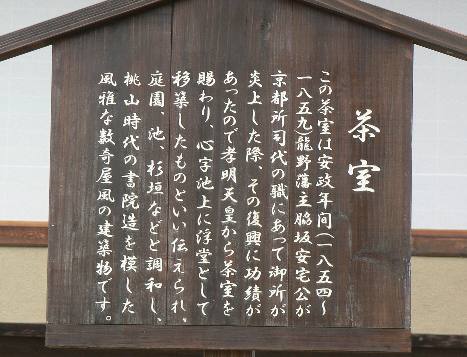 茶室
この茶室は安政年間(一八五四〜
一八五九)龍野藩主脇坂安宅公が
京都所司代の職にあって御所が
炎上した際、その復興に功績が
あったので孝明天皇から茶室を
賜わり、心字池上に浮堂として
移築したものといい伝えられ、
庭園、池、杉垣などと調和し、
桃山時代の書院造を模した
風雅な数奇屋風の建築物です。